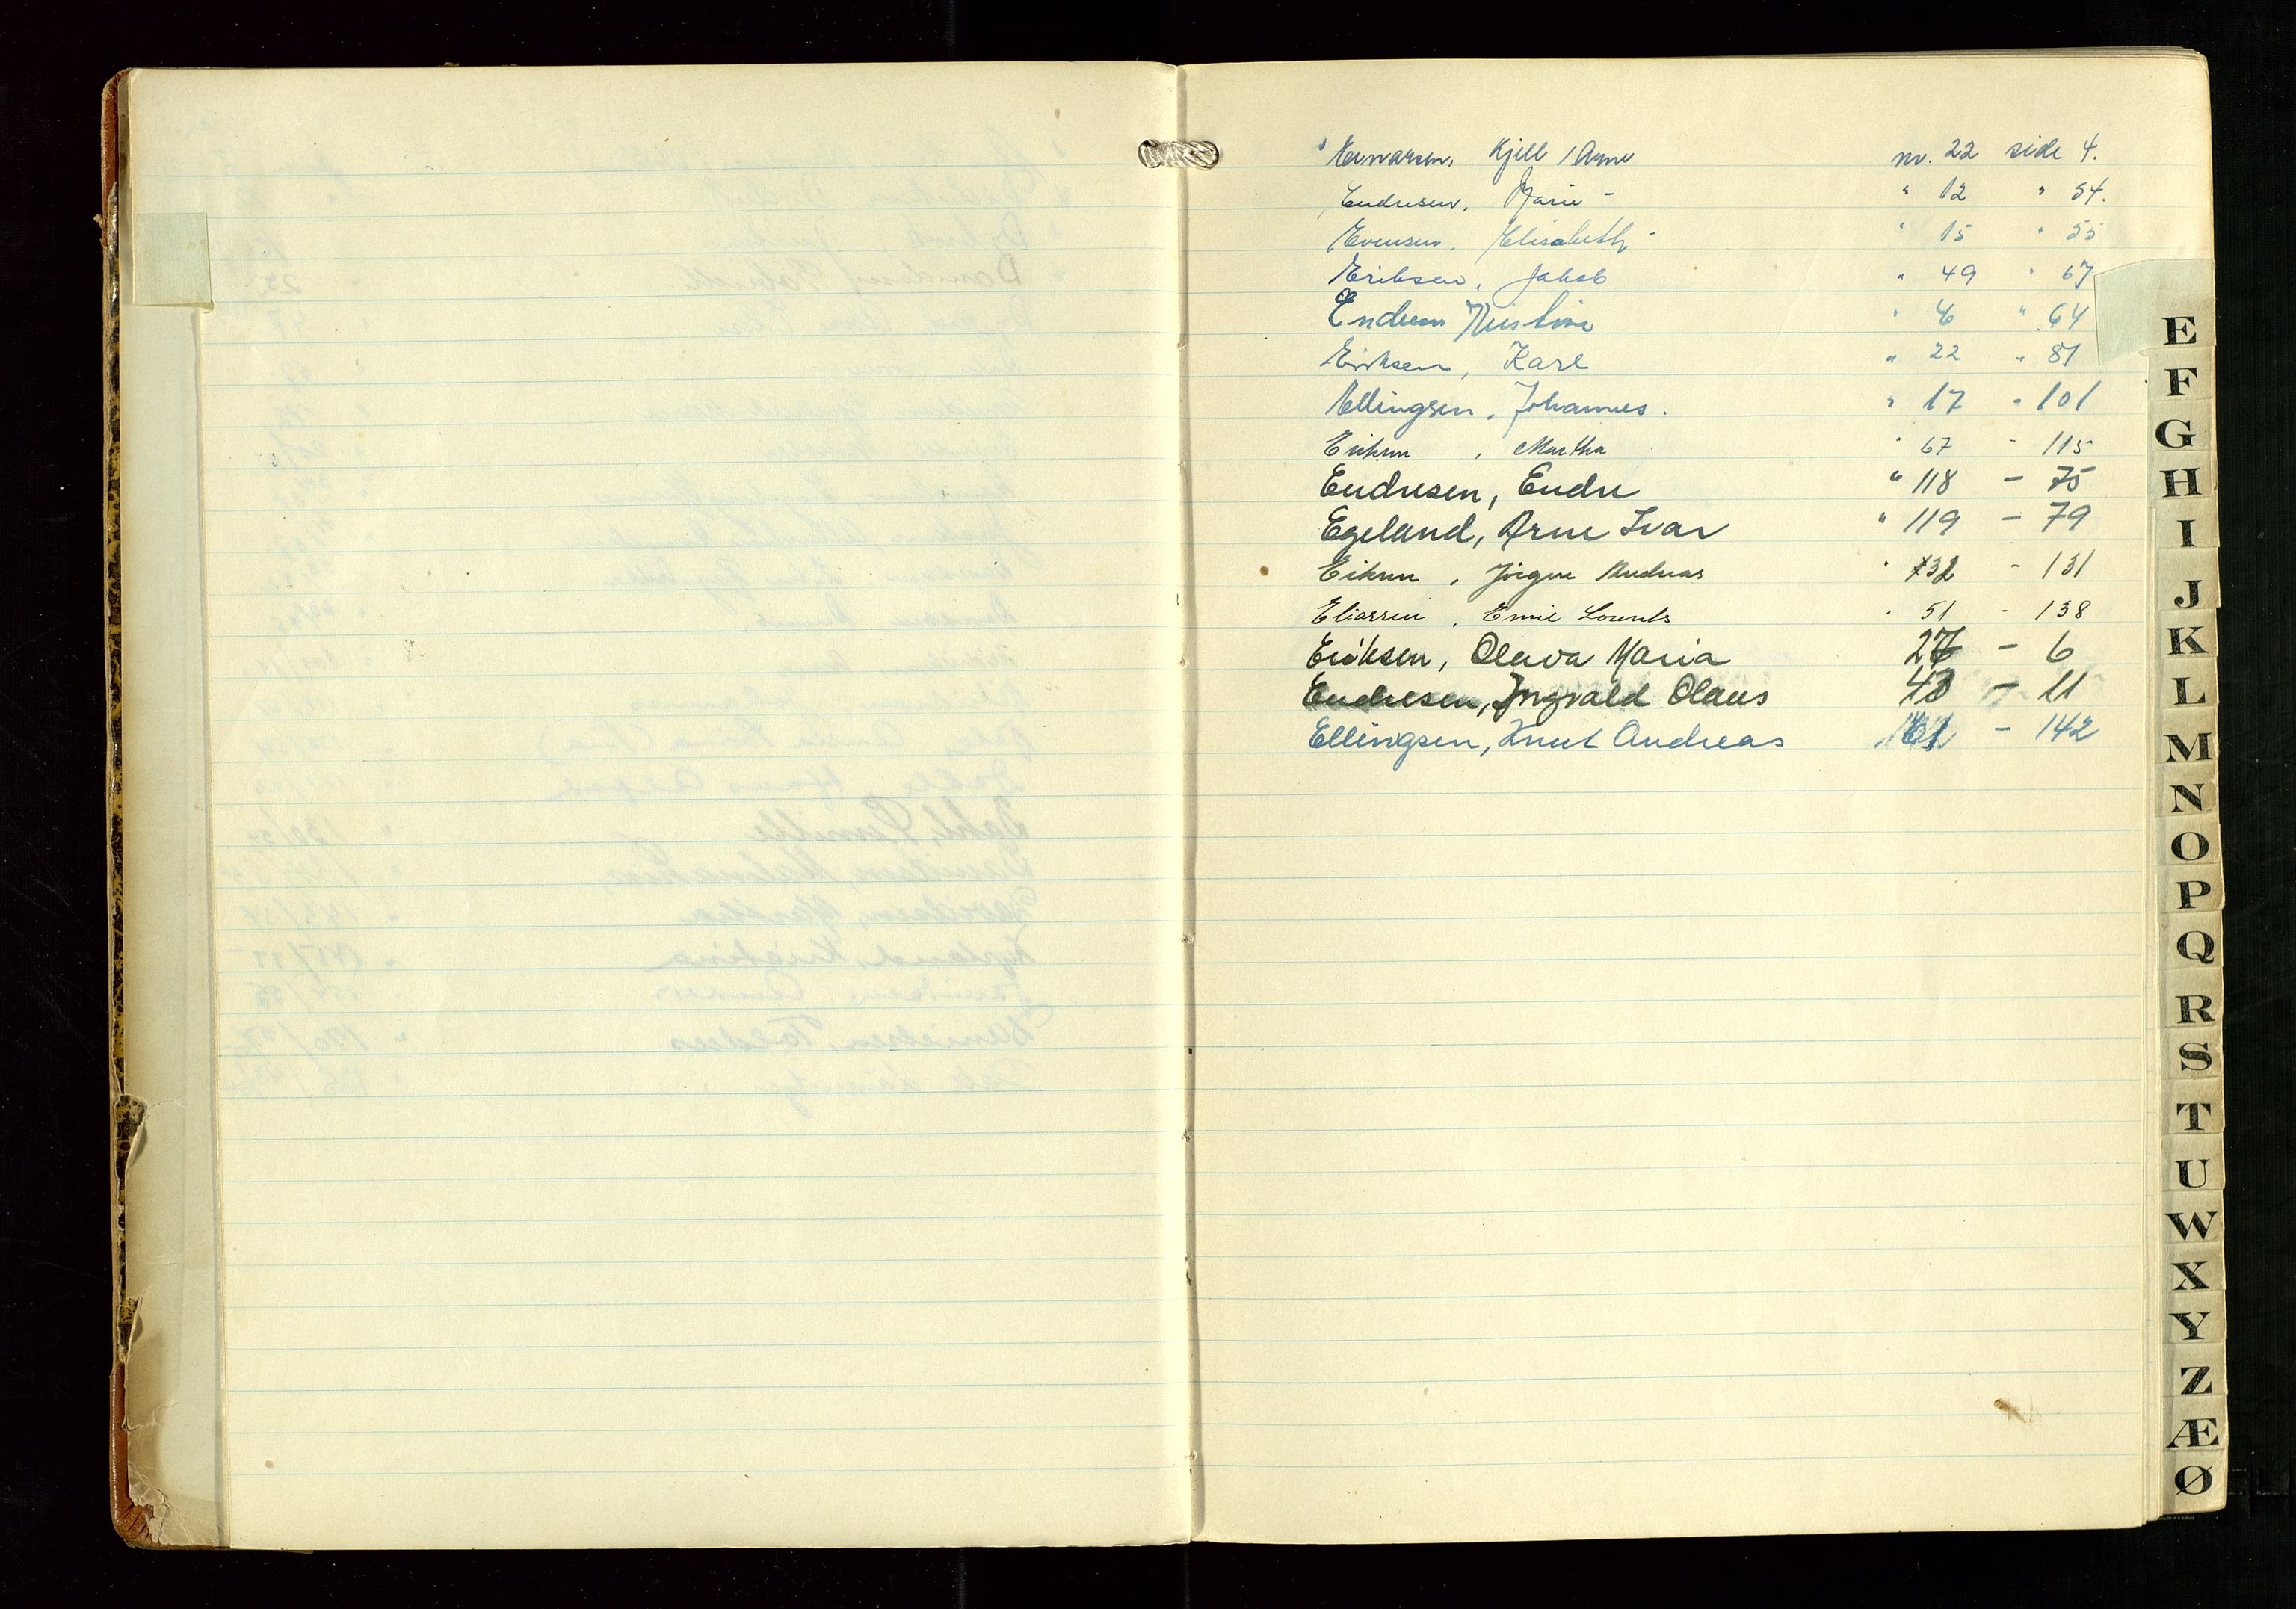 Kjell Arne nr. 22 side 4.
Endresen, Marie - " 12 " 54.
Evensen, Elisabeth - " 15 " 55
Eriksen, Jakob " 49 " 67
Endresen " 6 " 64
Eriksen, Karl " 22 " 81
Ellingsen, Johannes. " 17 - 101
Eriksen, Martha " 67 - 115
Endresen, Endre " 118 - 75
Egeland, Arne Ivar " 119 - 79
Eriksen, Jörgen Andreas " 132 - 131
Eliassen, Emil Lorents " 51 - 138
Eriksen, Oleva Maria - 6
Endresen, Ingvald Olaus 43 - 11
Ellingsen, Knut Andreas 161 - 142
E
F
G
H
I
J
K
L
M
N
O
P
Q
R
S
T
U
W
X
Y
Z
Æ
Ø